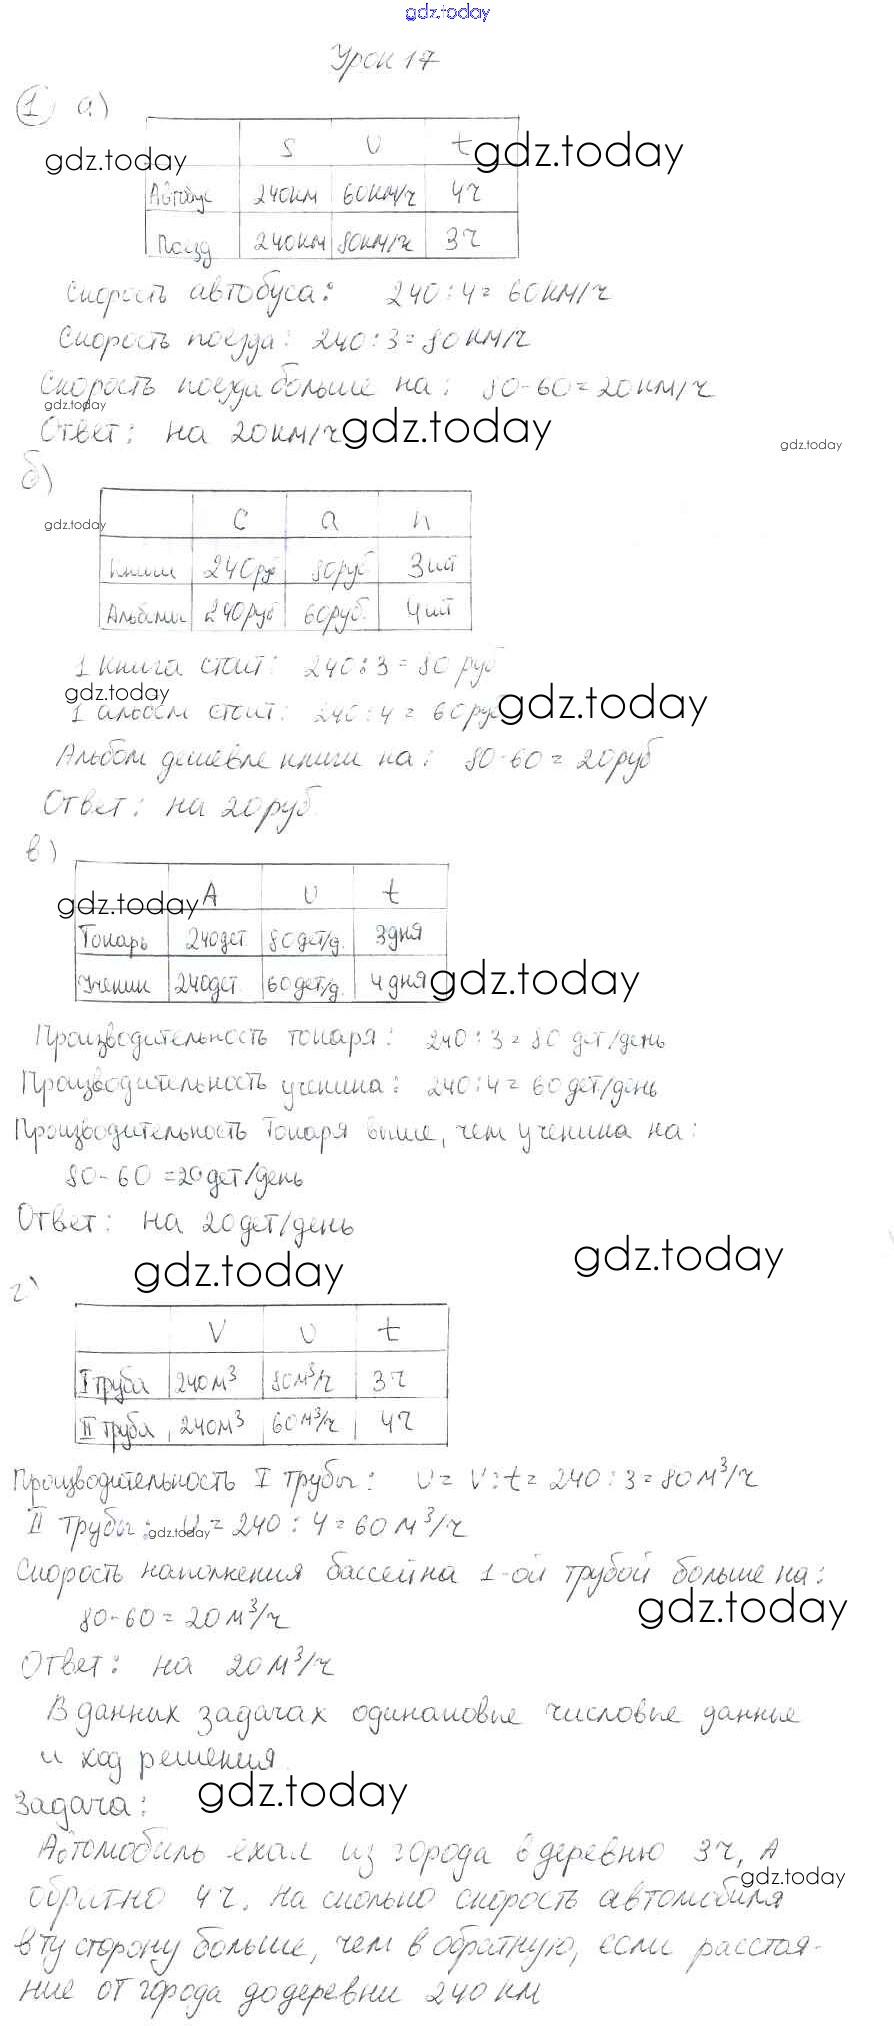 gdz.today
Урок 17
1 а)
S υ t
gdz.today gdz.today
Автобус 240км 60км/ч 4ч
Поезд 240км 80км/ч 3ч
Скорость автобуса: 240:4= 60км/ч
Скорость поезда: 240:3=80км/ч
Скорость поезда больше на: 80-60=20км/ч
gdz.today
Ответ: на 20км/ч gdz.today
gdz.today
б)
С а n
gdz.today
Книги 240руб 80руб 3шт
Альбомы 240руб 60руб. 4шт
1 книга стоит: 240:3=80 руб
gdz.today gdz.today
1 альбом стоит: 240:4= 60руб
Альбом дешевле книги на: 80-60= 20руб
Ответ: на 20руб.
в)
A υ t
gdz.today
Токарь 240дет 80дет/д. 3дня
Ученик 240дет. 60дет/д. 4дня gdz.today
Производительность токаря: 240:3=80 дет/день
Производительность ученика: 240:4=60дет/день
Производительность токаря выше, чем ученика на:
80-60=20дет/день
Ответ: на 20дет/день
gdz.today gdz.today
г)
V υ t
I труба 240м³ 80м³/ч 3ч
II труба 240м³ 60м³/ч 4ч
Производительность I трубы: υ= V:t= 240:3=80м³/ч
II трубы: υ= 240:4=60м³/ч
gdz.today
Скорость наполнения бассейна 1-ой трубой больше на:
80-60= 20м³/ч
gdz.today
Ответ: на 20м³/ч
В данных задачах одинаковые числовые данные
и ход решения.
gdz.today
Задача:
Автомобиль ехал из города в деревню 3ч, А
gdz.today
обратно 4ч. На сколько скорость автомобиля
в ту сторону больше, чем в обратную, если расстоя-
ние от города до деревни 240км